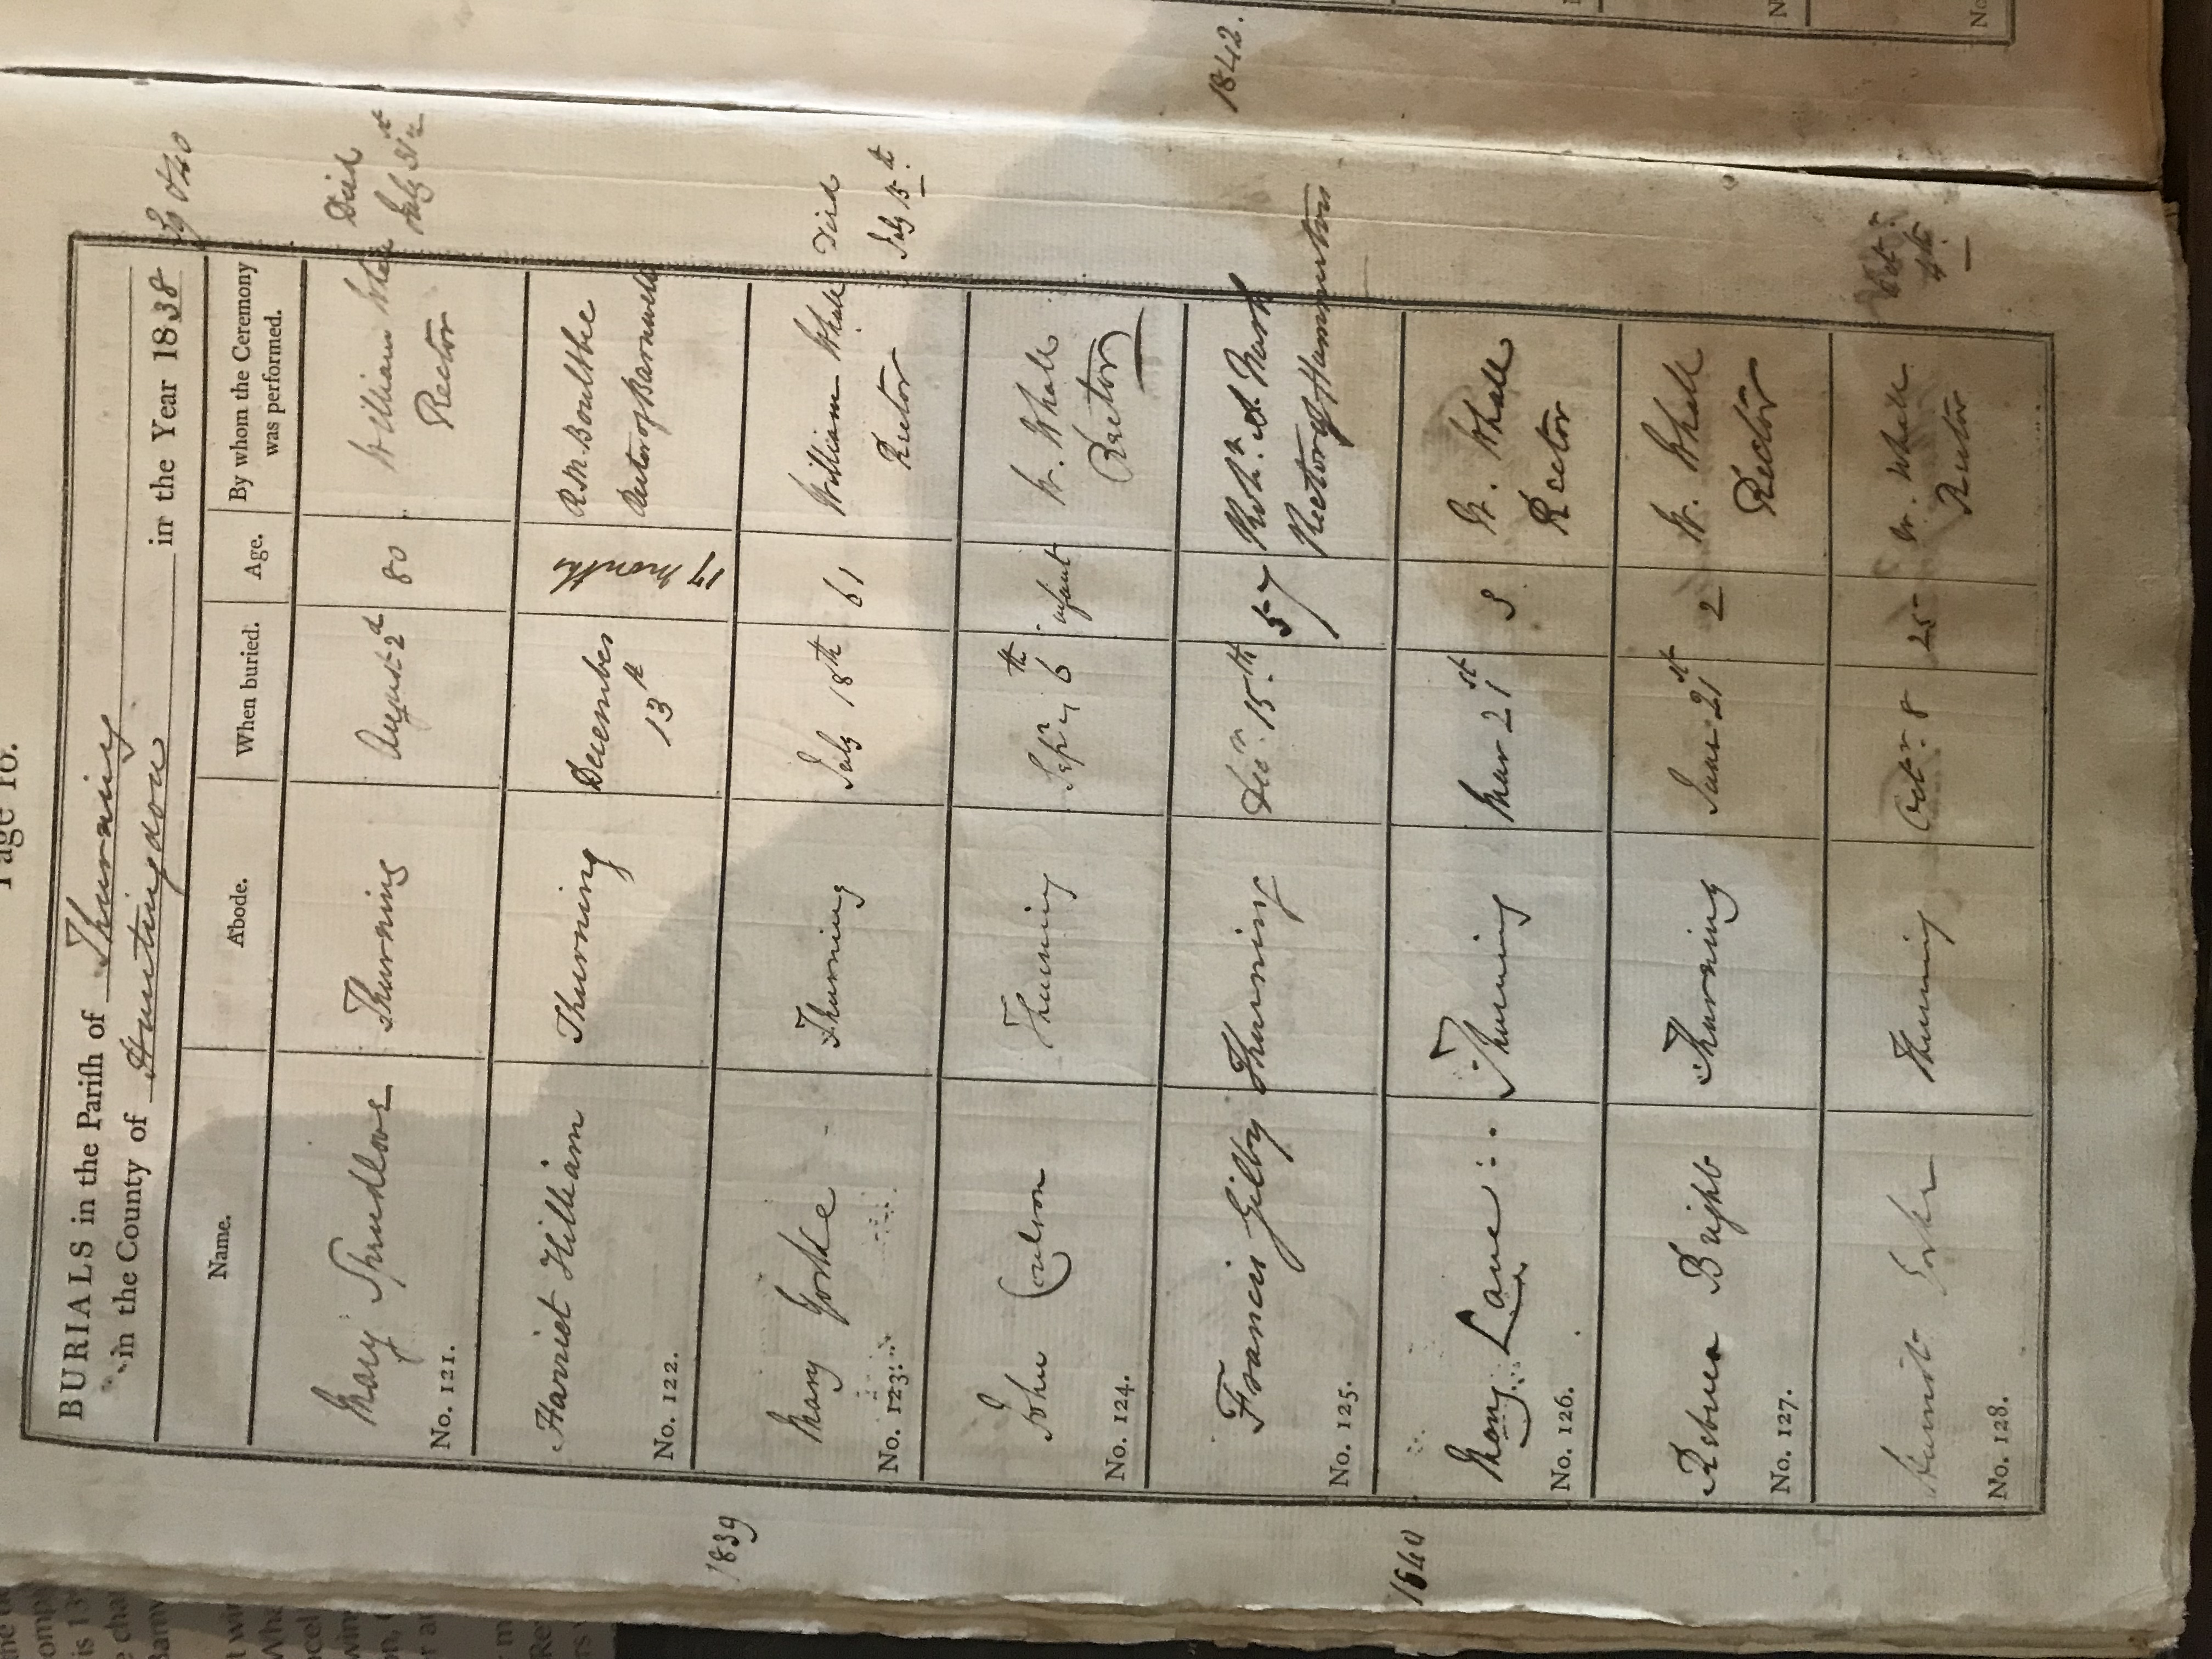 Page 16.
BURIALS in the Parish of Thurning
in the County of Huntingdon in the Year 1838
Name. Abode. When buried. Age. By whom the Ceremony was performed.
Mary Spendlove Thurning August 2d 80 William Whall Rector Died July 31st
No. 121.
Harriet Hilliam Thurning December 13th 17 months R. M. Boultbee Rector of Barnwell
No. 122.
1839
Mary Yorke Thurning July 18th 61 William Whall Rector Died July 15th
No. 123.
John Coulson Thurning Sepr 6th infant W. Whall Rector
No. 124.
Francis Gilby Thurning Decr 15th 57 Rector of Hammerton
No. 125.
1840
Mary Lane Thurning Mar 21st 3 W. Whall Rector
No. 126.
Rebecca Bright Thurning June 21st 2 W. Whall Rector
No. 127.
Thurning Octr 8 25 W. Whall Rector
No. 128.
1842.